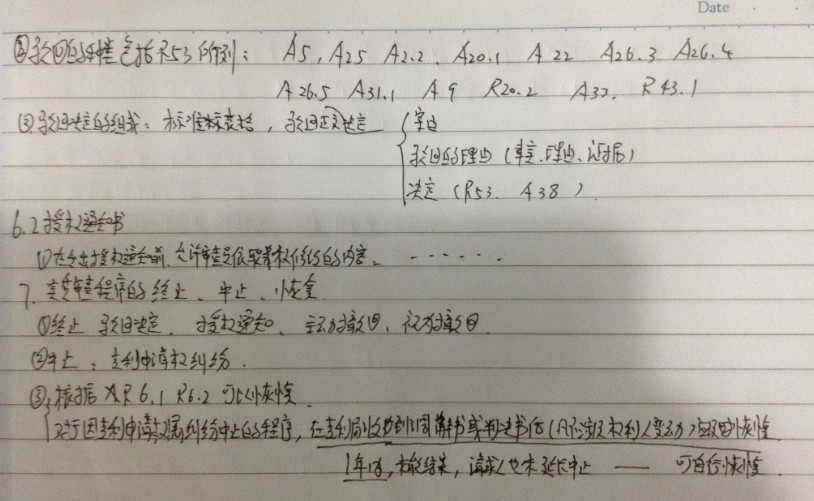 Date
②驳回的种类包括R53所列: A5, A25 A2.2、A20.1 A22 A26.3 A26.4
A26.5 A31.1 A9 R20.2 A33, R43.1
③驳回决定的组成: 标准标表格, 驳回正文决定 案由
驳回的理由 (事实、理由、证据)
决定 (R53. A38)
6.2 授权通知书
①在发出授权通知前, 允许审查员依职权修改的内容、 ......
7、实质审查程序的终止、中止、恢复
①终止 驳回决定、授权通知、主动撤回、视为撤回
②中止: 专利申请权纠纷.
③根据 R6.1 R6.2 可以恢复
对于因专利申请权属纠纷中止的程序, 在专利局收到调解书或判决书后(凡不涉及权利人变动) 恢复
1年内, 未能结案, 请求人也未延长中止 —— 可自行恢复